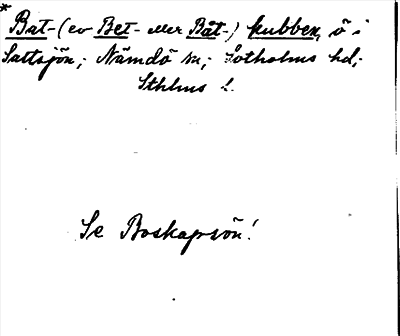 * Bat- (ev Bet- eller Båt-) kubben, ö i
Saltsjön; Nämdö sn; Sotholms hd;
Sthlms l.
Se Boskapsön!